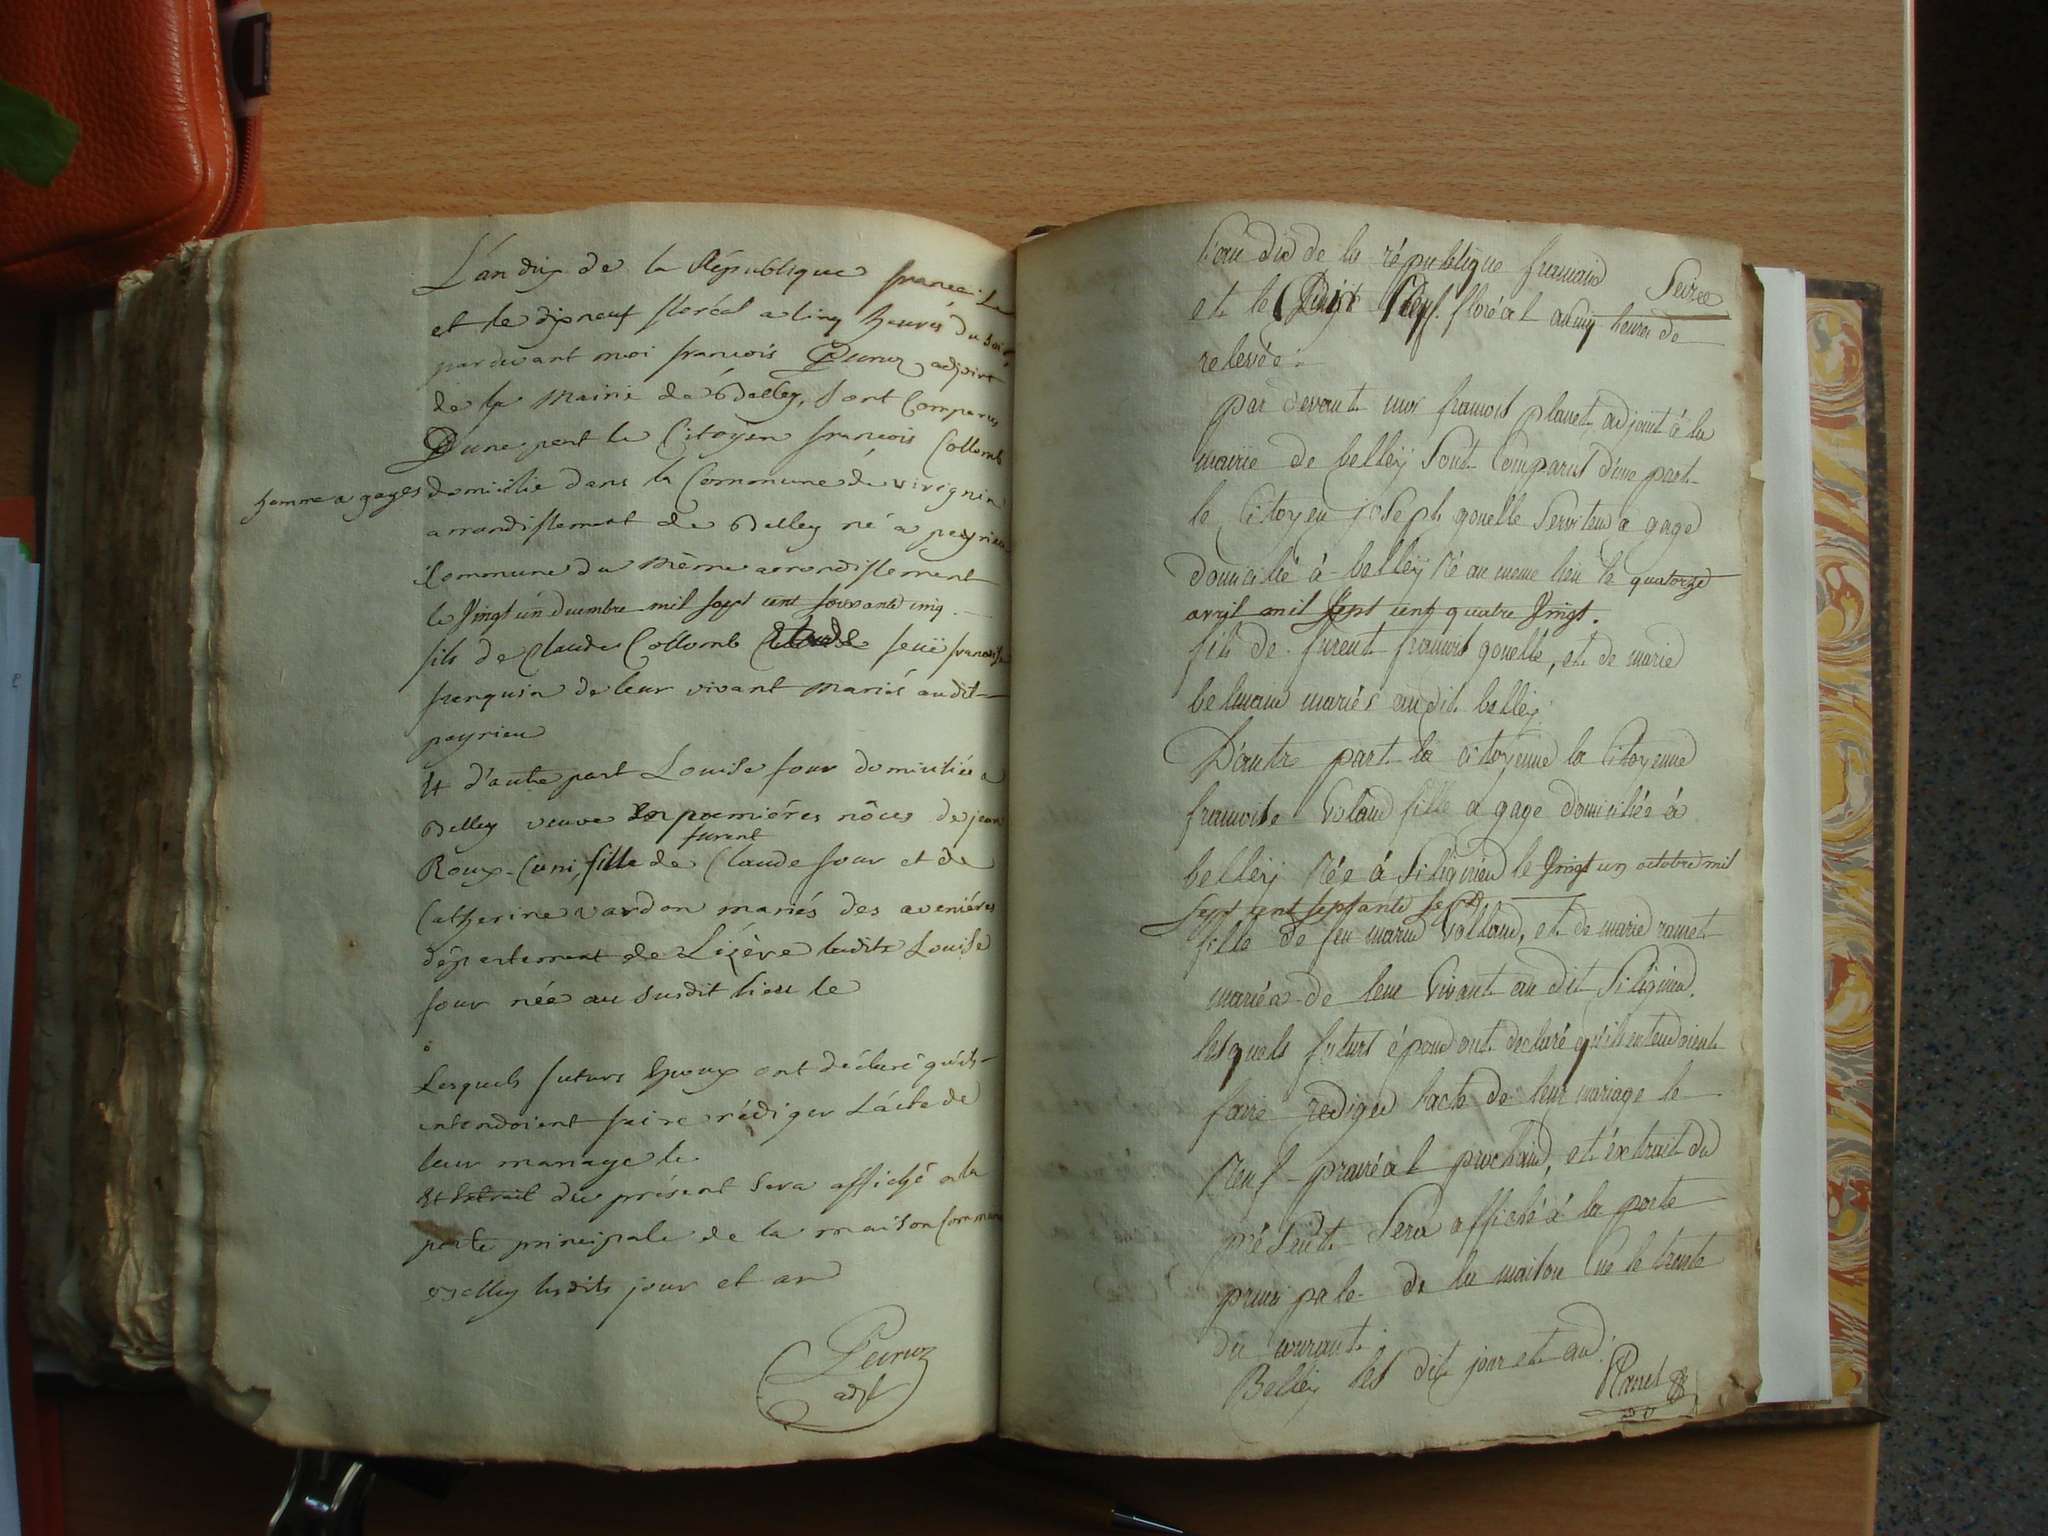 L'an dix de la République
et le dix neuf floréal a cinq heures du soir
pardevant moi françois adjoint
de la Mairie de Belley, sont Comparus
D'une part le Citoyen françois Collomb
homme a gages
domicilié dans la Commune de virignin
arrondissement de Belley né a peyrieu
Commune du même arrondissement
le Vingt un decembre mil sept cent soixante cinq
fils de Claude Collomb feuë francoise
de leur vivant mariés audit
peyrieu
Et d'autre part Louise four domiciliée a
Belley veuve en premiéres nôces de jean
furent
Roux-Cuni, fille de Claude four et de
Catherine vardon mariés des aveniéres
département de Lizère ladite Louise
four née au susdit lieu le
Lesquels futurs Epoux ont déclaré qu'ils
entendoient faire rédiger L'acte de
leur mariage le
Et Extrait du présent sera affiché a la
porte principale de la maison Commune
Belley lesdits jour et an
adjt
l'an dix de la république
et le Neuf. floréal a cinq heures de
relevée.
par devant moi françois planet adjoint à la
mairie de belleÿ Sont Comparus d'une part
le Citoyen joseph gouelle Serviteur a gage
domicilié à belleÿ Né au meme lieu le quatorze
avril mil Sept cent quatre Vingt.
fils de furent françois gouelle, et de marie
mariés audit belleÿ
D'autre part la citoyenne la Citoyenne
francoise Voland fille a gage domiciliée à
belleÿ Née à Silignieu le Vingt un octobre mil
Sept cent septante Sept
fille de feu Volland, et de marie ramet
mariés de leur Vivant au dit Silignieu.
lesquels futurs époux ont declaré qu'ils entendoient
faire rediger l'acte de leur mariage le
Neuf prairéal prochain, et éxtrait du
présent Sera affiché à la porte
principale de la maison Ce le trente
du courant.
Belleÿ les dit jour et an.
Planet